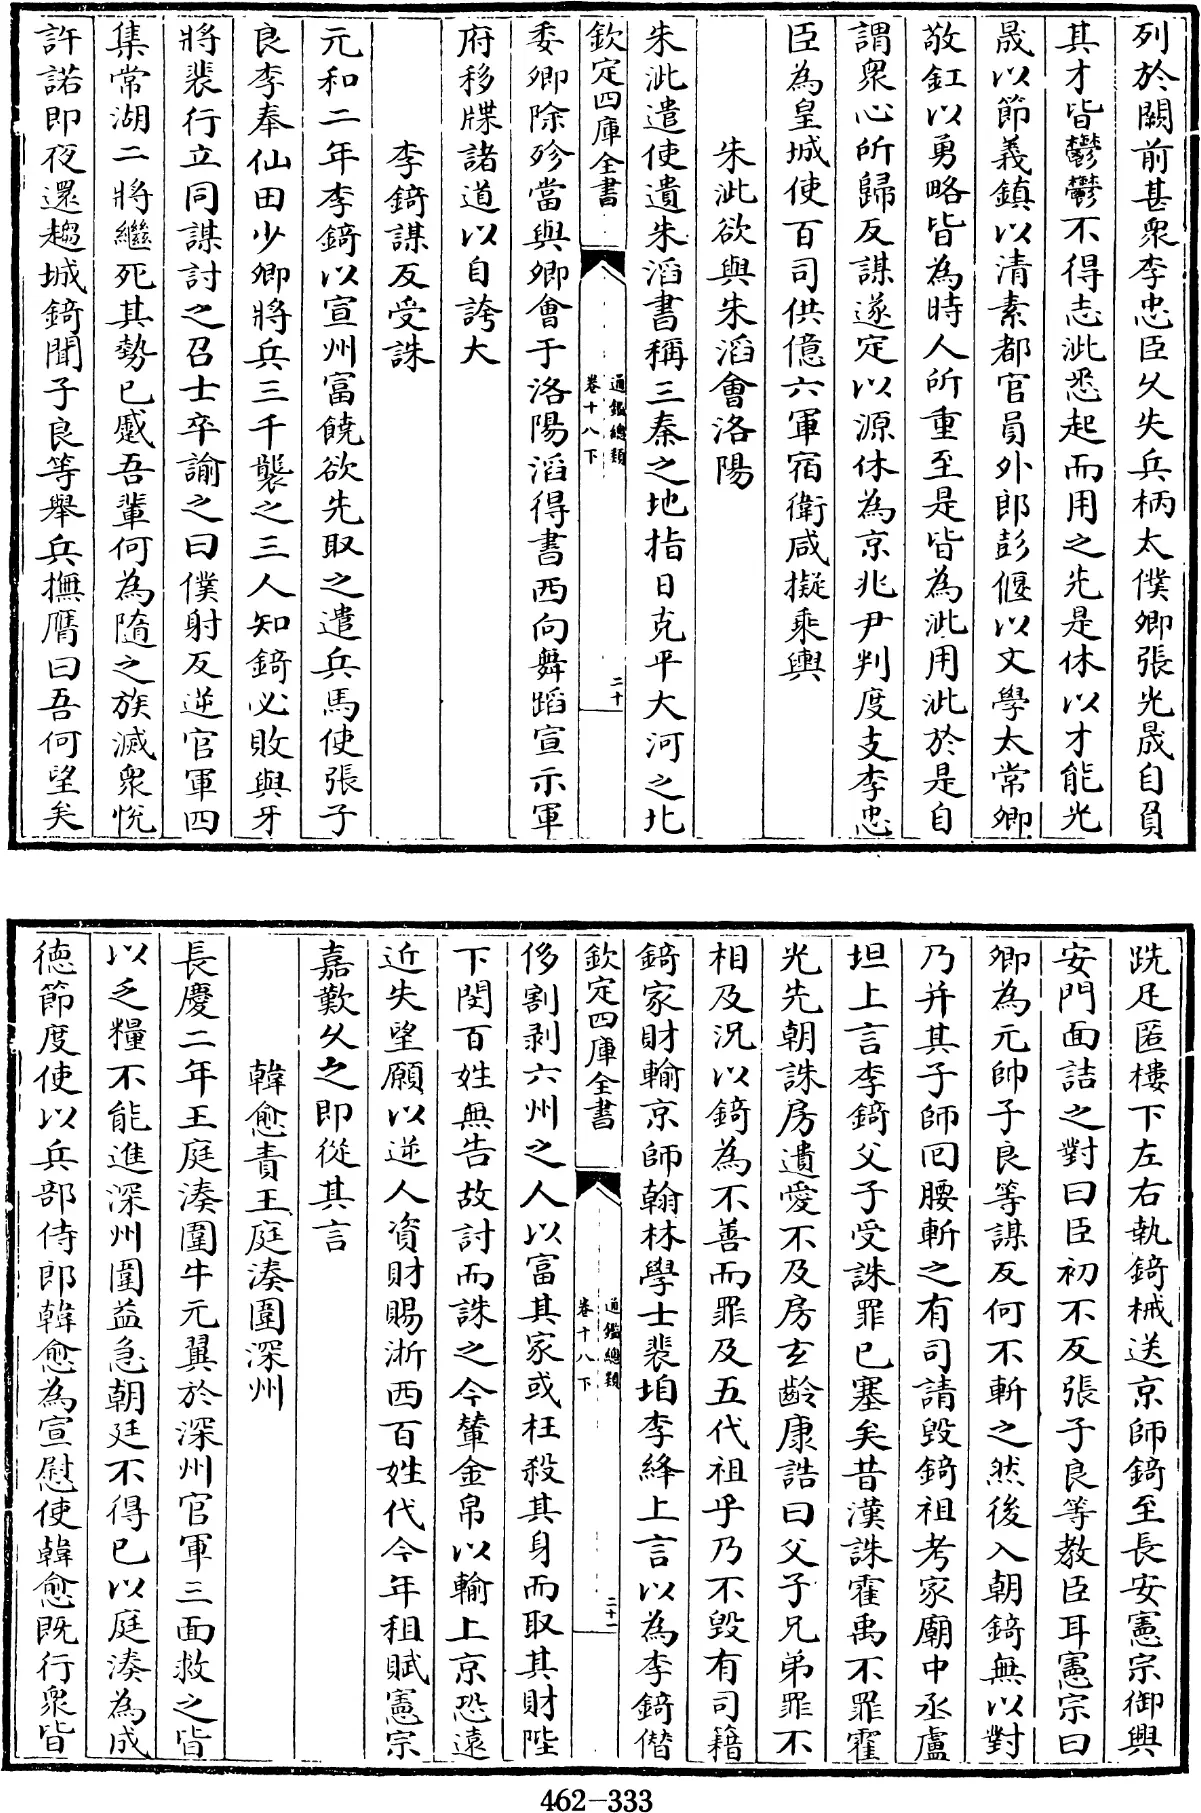 列於闕前甚衆李忠臣久失兵柄太僕卿張光晟自負
其才皆鬱鬱不得志泚悉起而用之先是休以才能光
晟以節義鎮以清素都官員外郎彭偃以文學太常卿
敬釭以勇略皆為時人所重至是皆為泚用泚於是自
謂衆心所歸反謀遂定以源休為京兆尹判度支李忠
臣為皇城使百司供億六軍宿衛咸擬乘輿
朱泚欲與朱滔會洛陽
朱泚遣使遺朱滔書稱三秦之地指日克平大河之北
欽定四庫全書
通鑑總類
卷十八下
二十
委卿除殄當與卿會于洛陽滔得書西向舞蹈宣示軍
府移牒諸道以自誇大
李錡謀反受誅
元和二年李錡以宣州富饒欲先取之遣兵馬使張子
良李奉仙田少卿將兵三千襲之三人知錡必敗與牙
將裴行立同謀討之召士卒諭之曰僕射反逆官軍四
集常湖二將繼死其勢已蹙吾輩何為隨之族滅衆悅
許諾即夜還趨城錡聞子良等舉兵撫膺曰吾何望矣
跣足匿樓下左右執錡械送京師錡至長安憲宗御興
安門面詰之對曰臣初不反張子良等教臣耳憲宗曰
卿為元帥子良等謀反何不斬之然後入朝錡無以對
乃并其子師回腰斬之有司請毀錡祖考家廟中丞盧
坦上言李錡父子受誅罪已塞矣昔漢誅霍禹不罪霍
光先朝誅房遺愛不及房玄齡康誥曰父子兄弟罪不
相及況以錡為不善而罪及五代祖乎乃不毀有司籍
錡家財輸京師翰林學士裴垍李絳上言以為李錡僭
欽定四庫全書
通鑑總類
卷十八下
二十一
侈割剥六州之人以富其家或枉殺其身而取其財陛
下閔百姓無告故討而誅之今輦金帛以輸上京恐遠
近失望願以逆人資財賜浙西百姓代今年租賦憲宗
嘉歎久之即從其言
韓愈責王庭湊圍深州
長慶二年王庭湊圍牛元翼於深州官軍三面救之皆
以乏糧不能進深州圍益急朝廷不得已以庭湊為成
德節度使以兵部侍郎韓愈為宣慰使韓愈既行衆皆
462-333